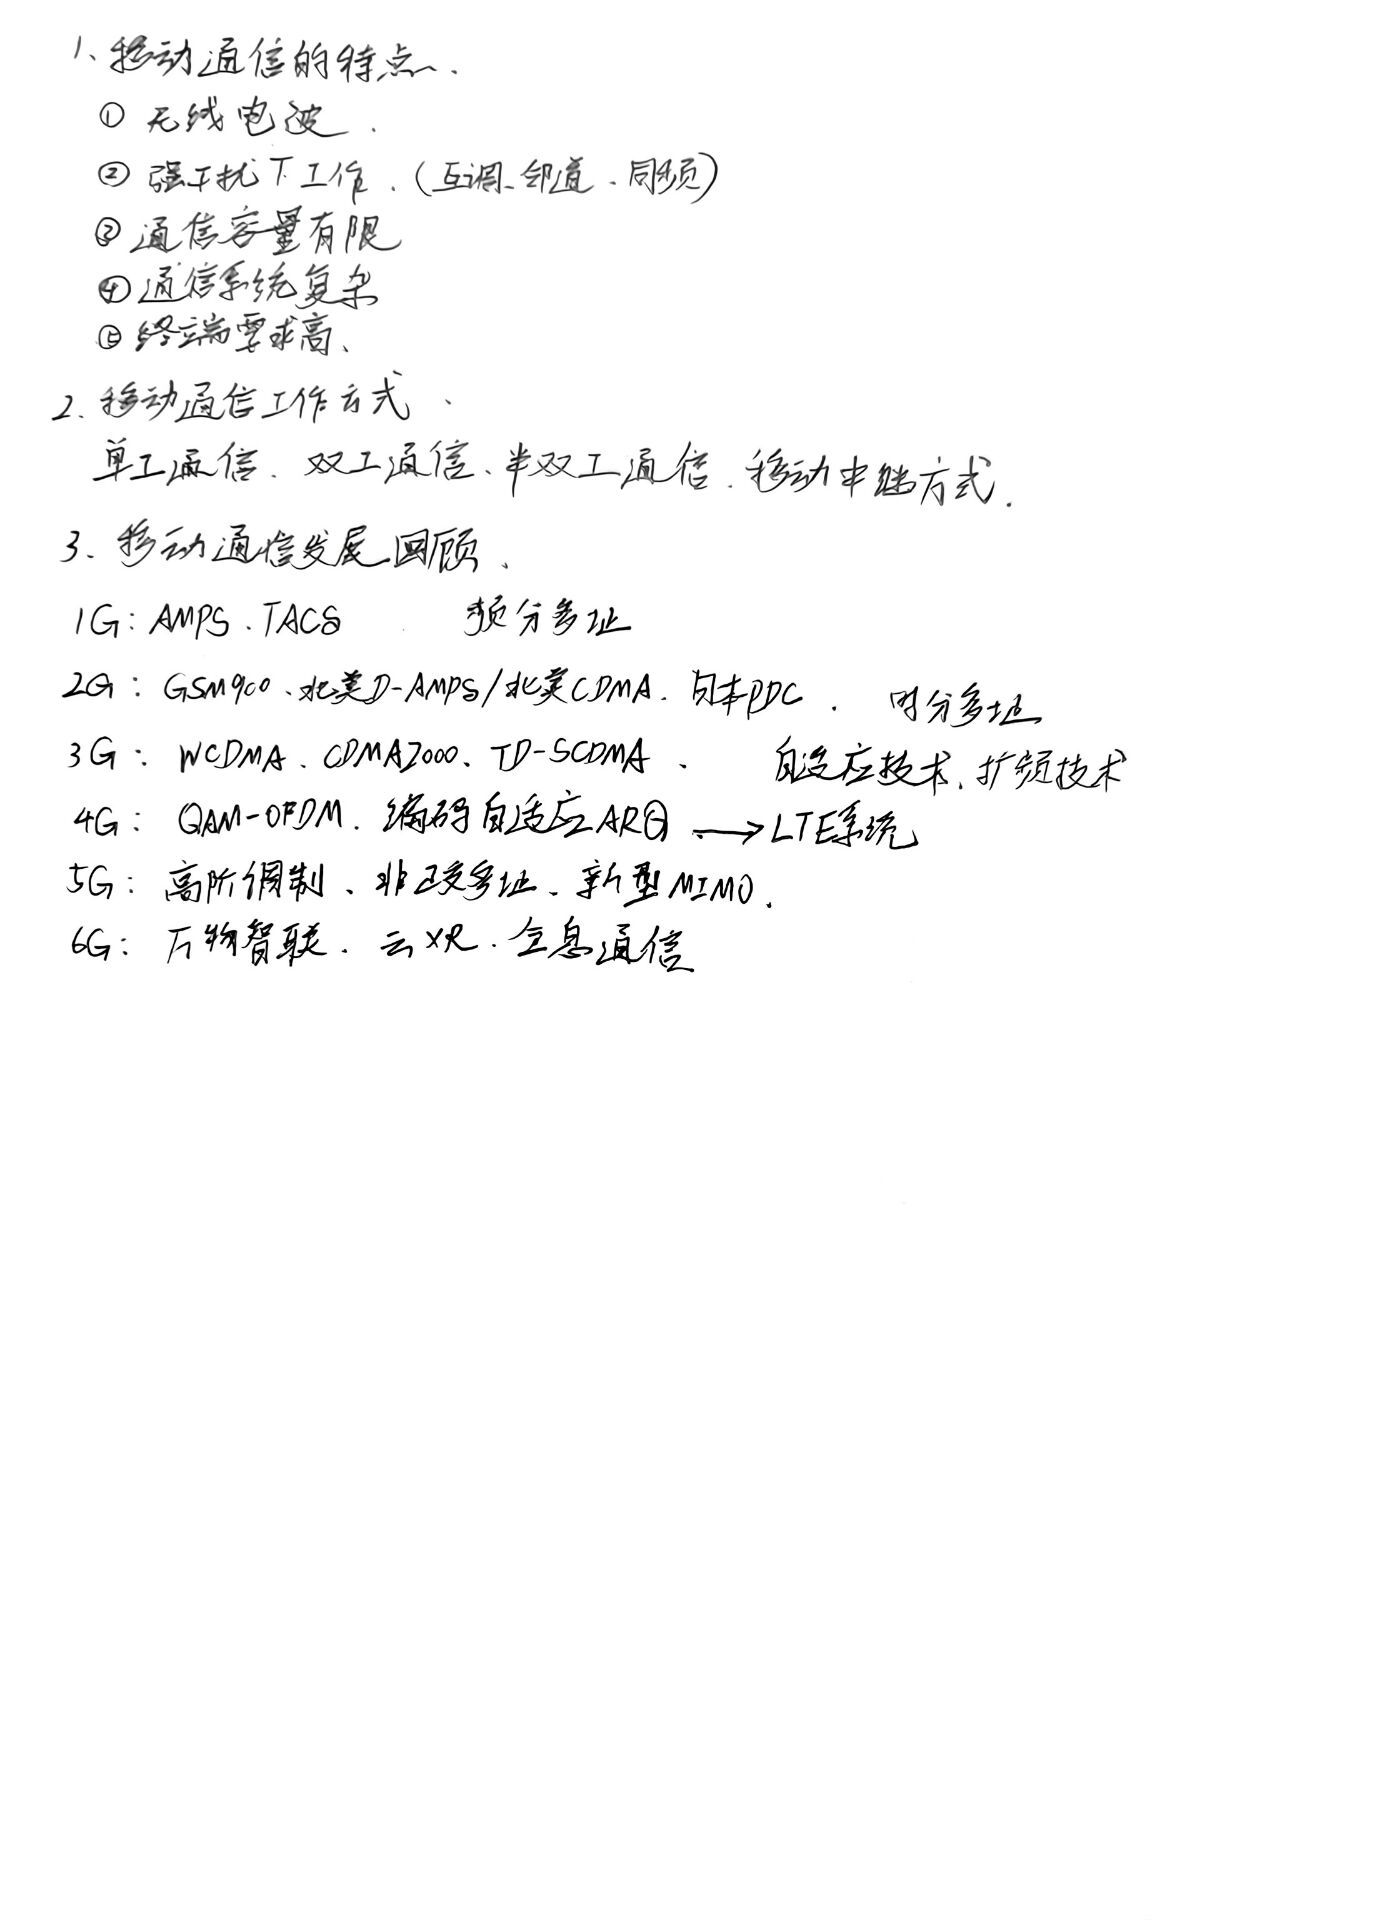 1、移动通信的特点.
① 无线电波.
② 强干扰下工作.(互调、邻道、同频)
③ 通信容量有限
④ 通信系统复杂
⑤ 终端要求高、
2.移动通信工作方式.
单工通信、双工通信、半双工通信.移动中继方式.
3、移动通信发展回顾.
1G: AMPS.TACS 频分多址
2G: GSM900、北美D-AMPS/北美CDMA.日本PDC. 时分多址
3G: WCDMA、CDMA2000、TD-SCDMA、 自适应技术、扩频技术
4G: QAM-OFDM.编码自适应ARQ → LTE系统
5G: 高阶调制、非正交多址、新型MIMO.
6G: 万物智联.云XR.全息通信